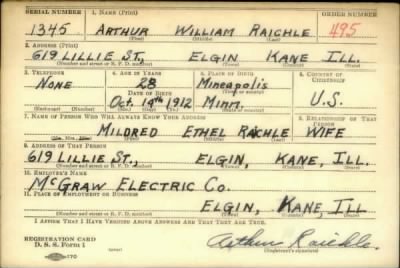 SERIAL NUMBER 1. NAME (Print) ORDER NUMBER
1345 ARTHUR WILLIAM RAICHLE 495
(First) (Middle) (Last)
2. ADDRESS (Print)
619 LILLIE ST., ELGIN KANE ILL.
(Number and street or R. F. D. number) (Town) (County) (State)
3. TELEPHONE 4. AGE IN YEARS 5. PLACE OF BIRTH 6. COUNTRY OF CITIZENSHIP
NONE 28 Mineapolis
DATE OF BIRTH
Oct. 14th 1912 Minn. U.S.
(Exchange) (Number) (Mo.) (Day) (Yr.) (State or country)
7. NAME OF PERSON WHO WILL ALWAYS KNOW YOUR ADDRESS 8. RELATIONSHIP OF THAT PERSON
MILDRED ETHEL RAICHLE WIFE
(Mr., Mrs., Miss) (First) (Middle) (Last)
9. ADDRESS OF THAT PERSON
619 LILLIE ST., ELGIN, KANE, ILL.
(Number and street or R. F. D. number) (Town) (County) (State)
10. EMPLOYER'S NAME
McGRAW ELECTRIC Co.
11. PLACE OF EMPLOYMENT OR BUSINESS
ELGIN, KANE, ILL
(Number and street or R. F. D. number) (Town) (County) (State)
I AFFIRM THAT I HAVE VERIFIED ABOVE ANSWERS AND THAT THEY ARE TRUE.
REGISTRATION CARD
D. S. S. Form 1 Arthur Raichle
(Registrant's signature)